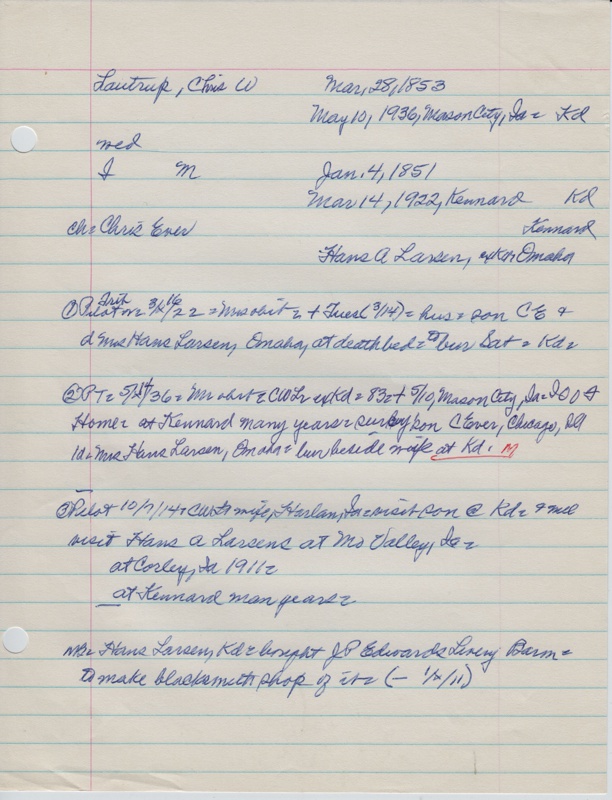 Lautrup, Chris W Mar, 28, 1853
May 10, 1936, Mason City, Ia = Kd
wed
I M Jan. 4, 1851
Mar 14, 1922, Kennard Kd
ch = Chris Ever Kennard
Hans A Larsen, ex Kd = Omaha
① Pilot Trib 3/16/22 = Mrs obit = + Tues (3/14) = hus = son CE &
d Mrs Hans Larsen, Omaha, at deathbed = to bur Sat = Kd =
② PT = 5/14/36 = Mr obit = CW Lr ex Kd = 83 = + 5/10, Mason City, Ia = IOOF
Home = at Kennard many years = sur by son C Ever, Chicago, Ill
1d = Mrs Hans Larsen, Omaha = bur beside wife at Kd. M
③ Pilot 10/7/14 = CW Lr wife, Harlan, Ia = visit son @ Kd = &
visit Hans A Larsens at Mo Valley, Ia =
at Corley, Ia 1911 =
at Kennard man years =
Hans Larsen, Kd = bought JP Edwards Livery Barn =
to make blacksmith shop of it = (– 1/ /11)